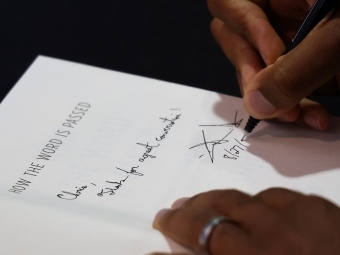 HOW THE WORD IS PASSED
Chris,
for a great conversation!
8/27/